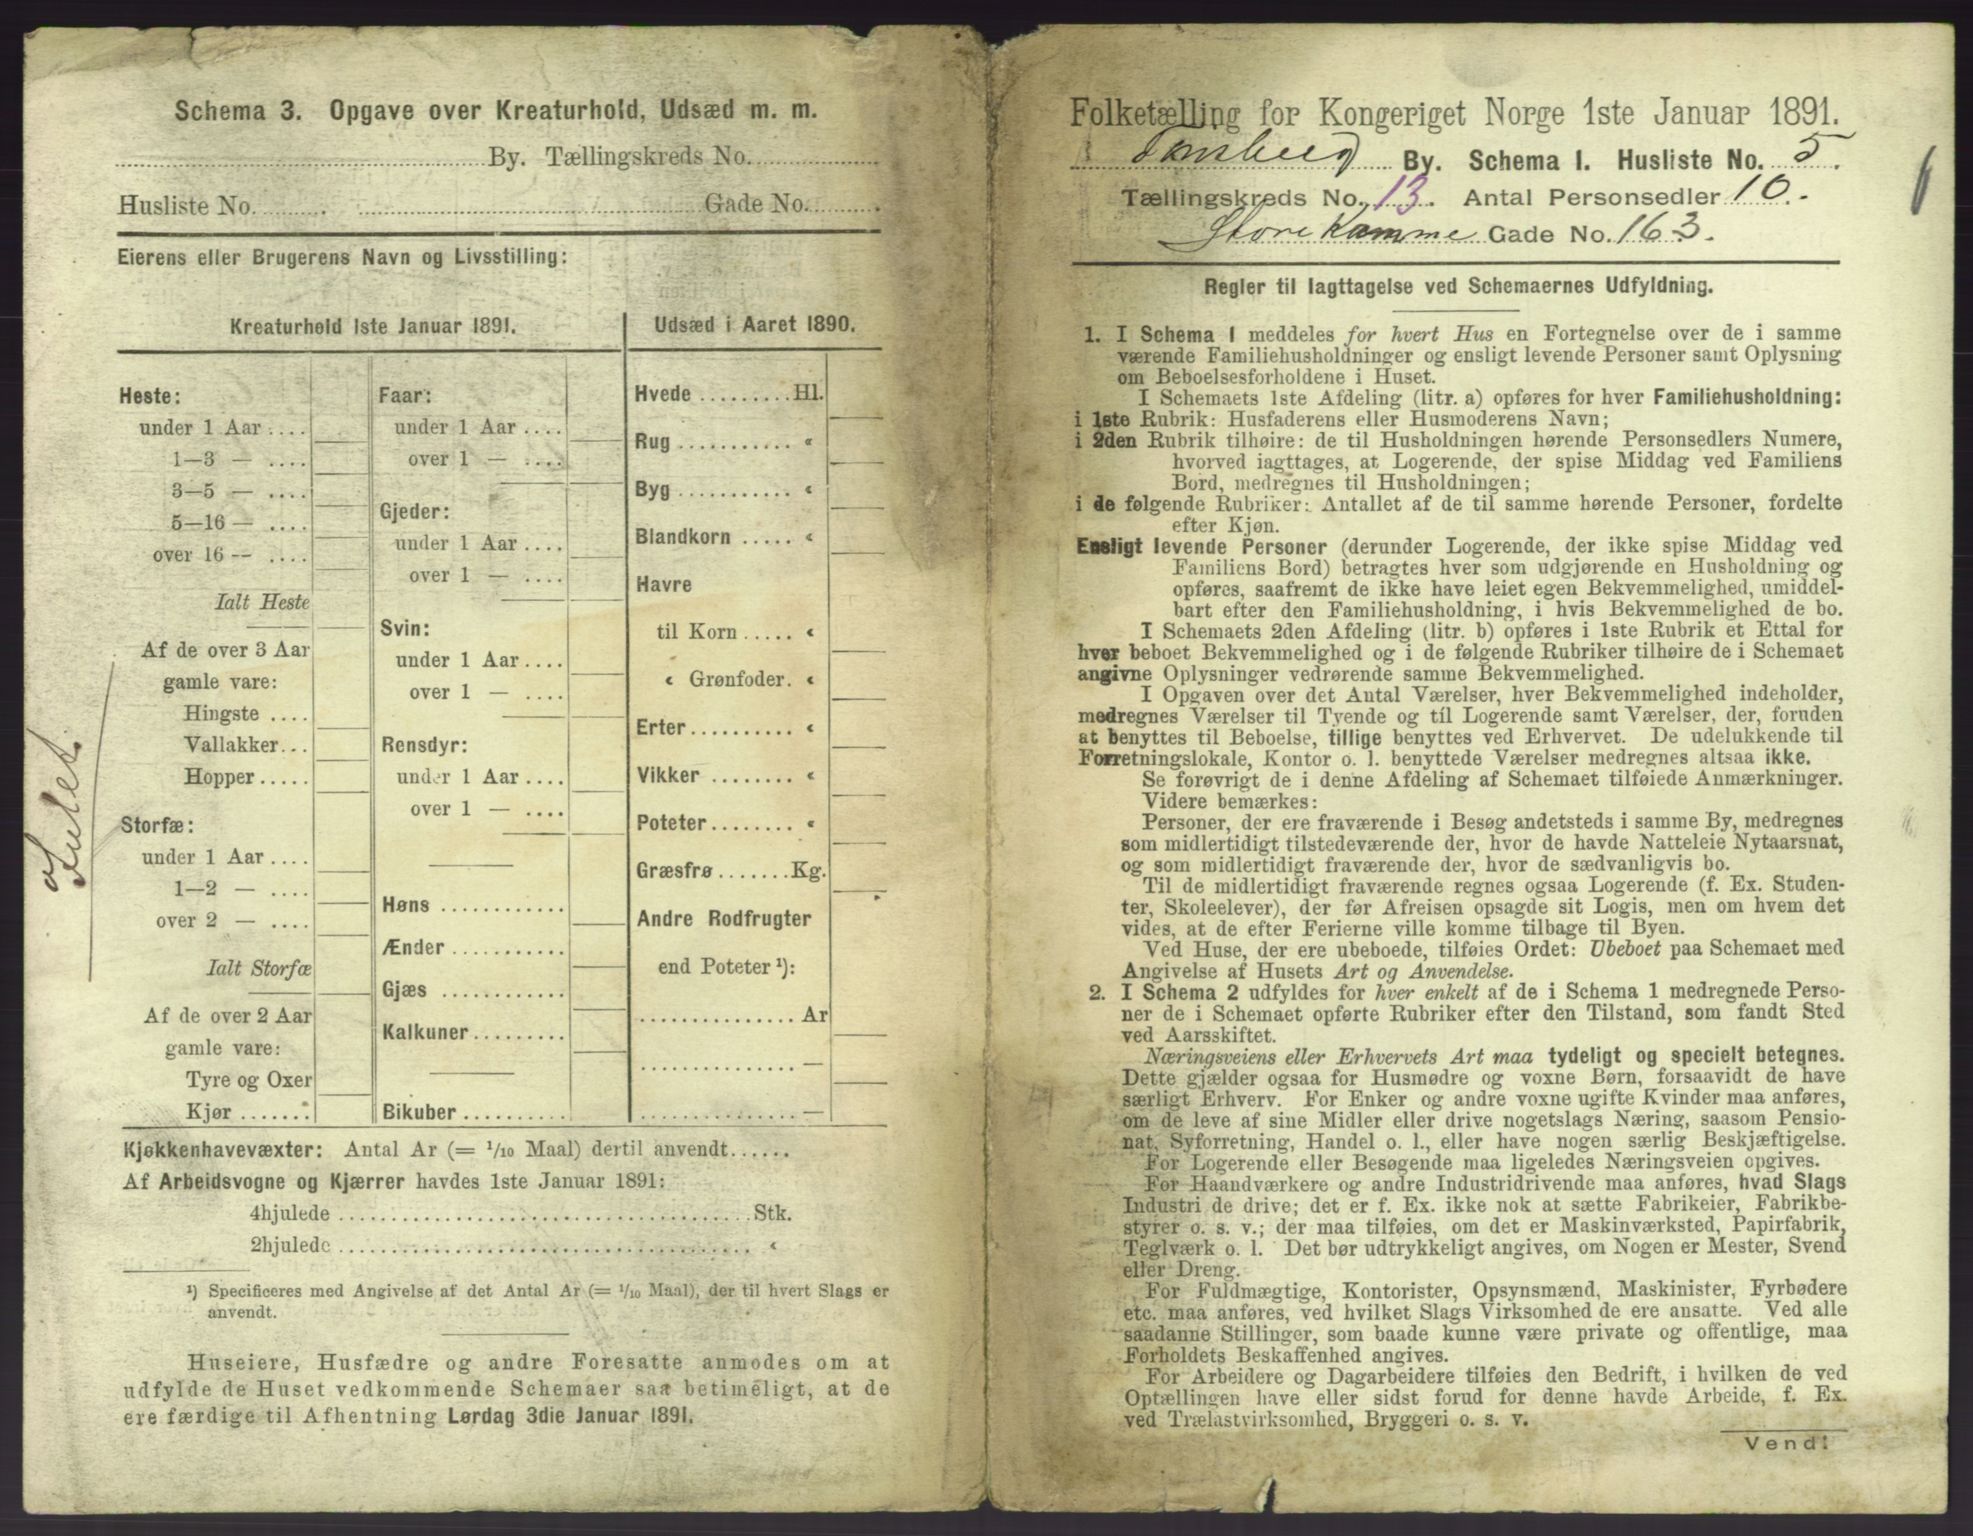 Schema 3. Opgave over Kreaturhold, Udsæd m. m.
By. Tællingskreds No.
Husliste No. Gade No.
Eierens eller Brugerens Navn og Livsstilling:
Kreaturhold 1ste Januar 1891.
Heste:
under 1 Aar ....
1—3 — ....
3—5 — ....
5—16 — ....
over 16 -- ....
Ialt Heste
Af de over 3 Aar
gamle vare:
Hingste ....
Vallakker...
Hopper.....
Storfæ:
under 1 Aar ....
1—2 — ....
over 2 — ....
Ialt Storfæ
Af de over 2 Aar
gamle vare:
Tyre og Oxer
Kjør.......
Faar:
under 1 Aar ....
over 1 — ....
Gjeder:
under 1 Aar ....
over 1 — ....
Svin:
under 1 Aar....
over 1 — ....
Rensdyr:
under 1 Aar....
over 1 — ....
Høns ............
Ænder ...........
Gjæs ............
Kalkuner.........
Bikuber..........
Udsæd i Aaret 1890.
Hvede .........Hl.
Rug ........... «
Byg ........... «
Blandkorn ..... «
Havre
til Korn ..... «
« Grønfoder. «
Erter.......... «
Vikker ........ «
Poteter........ «
Græsfrø.......Kg.
Andre Rodfrugter
end Poteter ¹):
............... Ar
............... —
............... —
Kjøkkenhavevæxter: Antal Ar (= ¹/₁₀ Maal) dertil anvendt......
Af Arbeidsvogne og Kjærrer havdes 1ste Januar 1891:
4hjulede ......................................Stk.
2hjulede ...................................... «
¹) Specificeres med Angivelse af det Antal Ar (= ¹/₁₀ Maal), der til hvert Slags er
anvendt.
Huseiere, Husfædre og andre Foresatte anmodes om at
udfylde de Huset vedkommende Schemaer saa betimeligt, at de
ere færdige til Afhentning Lørdag 3die Januar 1891.
Intet.
Folketælling for Kongeriget Norge 1ste Januar 1891.
Tønsberg By. Schema 1. Husliste No. 5.
Tællingskreds No. 13. Antal Personsedler 10.
Store Kamme Gade No. 163.
Regler til Iagttagelse ved Schemaernes Udfyldning.
1. I Schema 1 meddeles for hvert Hus en Fortegnelse over de i samme
værende Familiehusholdninger og ensligt levende Personer samt Oplysning
om Beboelsesforholdene i Huset.
I Schemaets 1ste Afdeling (litr. a) opføres for hver Familiehusholdning:
i 1ste Rubrik: Husfaderens eller Husmoderens Navn;
i 2den Rubrik tilhøire: de til Husholdningen hørende Personsedlers Numere,
hvorved iagttages, at Logerende, der spise Middag ved Familiens
Bord, medregnes til Husholdningen;
i de følgende Rubriker: Antallet af de til samme hørende Personer, fordelte
efter Kjøn.
Ensligt levende Personer (derunder Logerende, der ikke spise Middag ved
Familiens Bord) betragtes hver som udgjørende en Husholdning og
opføres, saafremt de ikke have leiet egen Bekvemmelighed, umiddel-
bart efter den Familiehusholdning, i hvis Bekvemmelighed de bo.
I Schemaets 2den Afdeling (litr. b) opføres i 1ste Rubrik et Ettal for
hver beboet Bekvemmelighed og i de følgende Rubriker tilhøire de i Schemaet
angivne Oplysninger vedrørende samme Bekvemmelighed.
I Opgaven over det Antal Værelser, hver Bekvemmelighed indeholder,
medregnes Værelser til Tyende og til Logerende samt Værelser, der, foruden
at benyttes til Beboelse, tillige benyttes ved Erhvervet. De udelukkende til
Forretningslokale, Kontor o. l. benyttede Værelser medregnes altsaa ikke.
Se forøvrigt de i denne Afdeling af Schemaet tilføiede Anmærkninger.
Videre bemærkes:
Personer, der ere fraværende i Besøg andetsteds i samme By, medregnes
som midlertidigt tilstedeværende der, hvor de havde Natteleie Nytaarsnat,
og som midlertidigt fraværende der, hvor de sædvanligvis bo.
Til de midlertidigt fraværende regnes ogsaa Logerende (f. Ex. Studen-
ter, Skoleelever), der før Afreisen opsagde sit Logis, men om hvem det
vides, at de efter Ferierne ville komme tilbage til Byen.
Ved Huse, der ere ubeboede, tilføies Ordet: Ubeboet paa Schemaet med
Angivelse af Husets Art og Anvendelse.
2. I Schema 2 udfyldes for hver enkelt af de i Schema 1 medregnede Perso-
ner de i Schemaet opførte Rubriker efter den Tilstand, som fandt Sted
ved Aarsskiftet.
Næringsveiens eller Erhvervets Art maa tydeligt og specielt betegnes.
Dette gjælder ogsaa for Husmødre og voxne Børn, forsaavidt de have
særligt Erhverv. For Enker og andre voxne ugifte Kvinder maa anføres,
om de leve af sine Midler eller drive nogetslags Næring, saasom Pensio-
nat, Syforretning, Handel o. l., eller have nogen særlig Beskjæftigelse.
For Logerende eller Besøgende maa ligeledes Næringsveien opgives.
For Haandværkere og andre Industridrivende maa anføres, hvad Slags
Industri de drive; det er f. Ex. ikke nok at sætte Fabrikeier, Fabrikbe-
styrer o. s. v.; der maa tilføies, om det er Maskinværksted, Papirfabrik,
Teglværk o. l. Det bør udtrykkeligt angives, om Nogen er Mester, Svend
eller Dreng.
For Fuldmægtige, Kontorister, Opsynsmænd, Maskinister, Fyrbødere
etc. maa anføres, ved hvilket Slags Virksomhed de ere ansatte. Ved alle
saadanne Stillinger, som baade kunne være private og offentlige, maa
Forholdets Beskaffenhed angives.
For Arbeidere og Dagarbeidere tilføies den Bedrift, i hvilken de ved
Optællingen have eller sidst forud for denne havde Arbeide, f. Ex.
ved Trælastvirksomhed, Bryggeri o. s. v.
Vend!